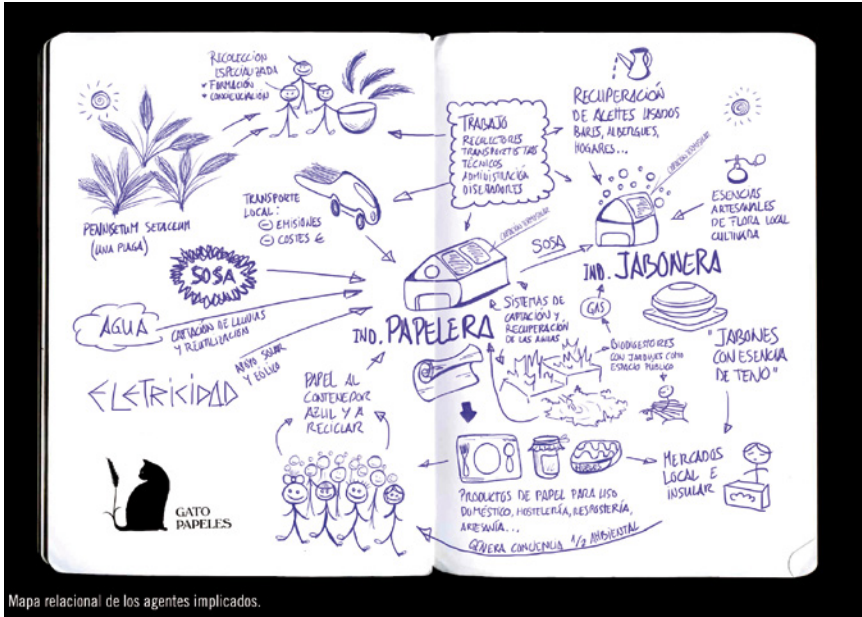 RECOLECCIÓN
ESPECIALIZADA
* FORMACIÓN
* CONCIENCIACIÓN
PENNISETUM SETACEUM
(UNA PLAGA)
TRANSPORTE
LOCAL:
⊖ EMISIONES
⊖ COSTES €
SOSA
AGUA
CAPTACIÓN DE LLUVIAS
Y REUTILIZACIÓN
ELETRICIDAD
APOYO SOLAR
Y EÓLICO
PAPEL AL
CONTENEDOR
AZUL Y A
RECICLAR
GATO
PAPELES
TRABAJO
RECOLECTORES
TRANSPORTISTAS
TÉCNICOS
ADMINISTRACIÓN
DISEÑADORES
RECUPERACIÓN
DE ACEITES USADOS
BARES, ALBERGUES,
HOGARES...
CAPTACIÓN
ESENCIAS
ARTESANALES
DE FLORA LOCAL
CULTIVADA
CAPTACIÓN
SOSA
IND. JABONERA
IND. PAPELERA
SISTEMAS DE
CAPTACIÓN Y
RECUPERACIÓN
DE LAS AGUAS
GAS
BIODIGESTORES
CON JARDINES COMO
ESPACIO PÚBLICO
"JABONES
CON ESENCIA
DE TENO"
PRODUCTOS DE PAPEL PARA USO
DOMÉSTICO, HOSTELERÍA, RESPOSTERÍA,
ARTESANÍA...
MERCADOS
LOCAL E
INSULAR
GENERA CONCIENCIA 1/2 AMBIENTAL
Mapa relacional de los agentes implicados.